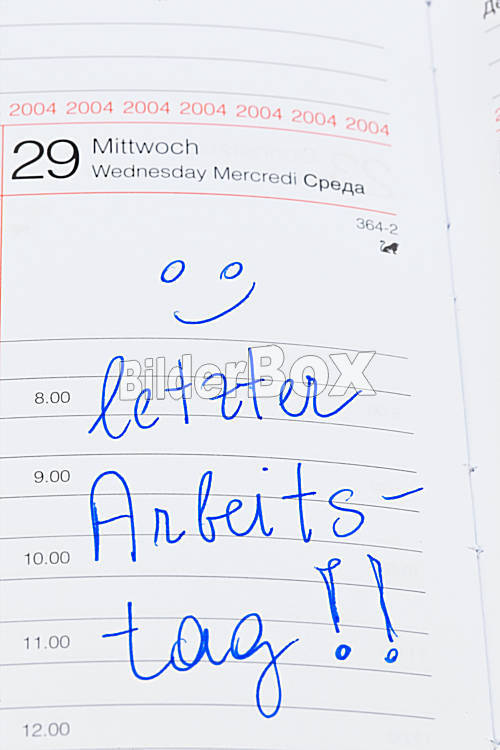 2004 2004 2004 2004 2004 2004 2004
29 Mittwoch
Wednesday Mercredi Среда
364-2
BilderBOX
8.00 letzter
9.00 Arbeits-
10.00
11.00 tag!!
12.00